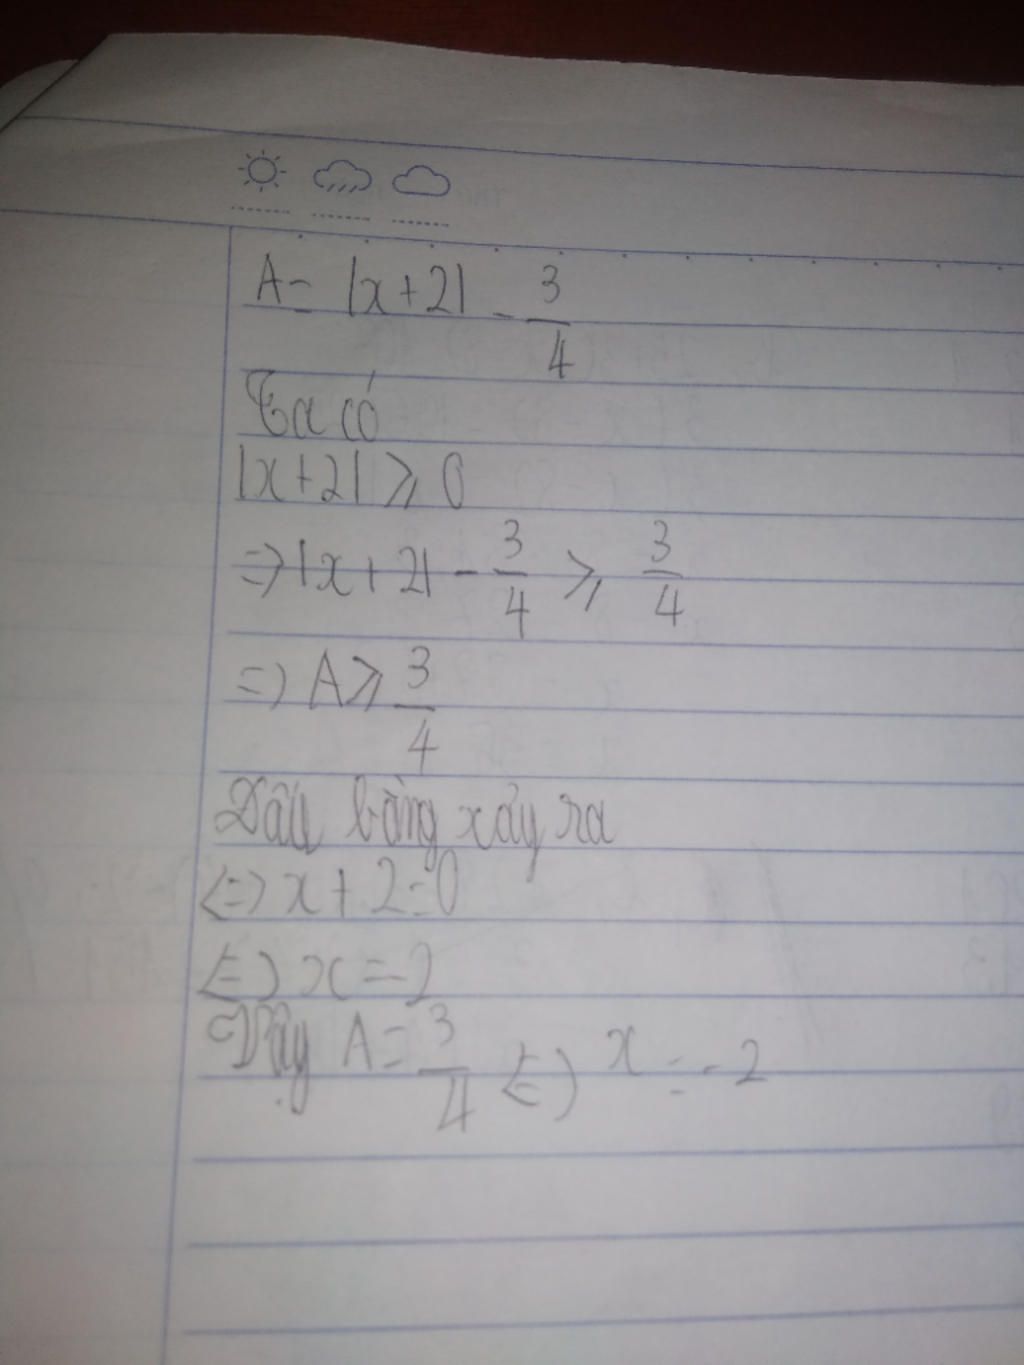 A = |x + 2| - 3/4
Ta có
|x + 2| ⩾ 0
=> |x + 2| - 3/4 ⩾ 3/4
=> A ⩾ 3/4
Dấu bằng xảy ra
<=> x + 2 = 0
<=> x = -2
Vậy A = 3/4 <=> x = -2